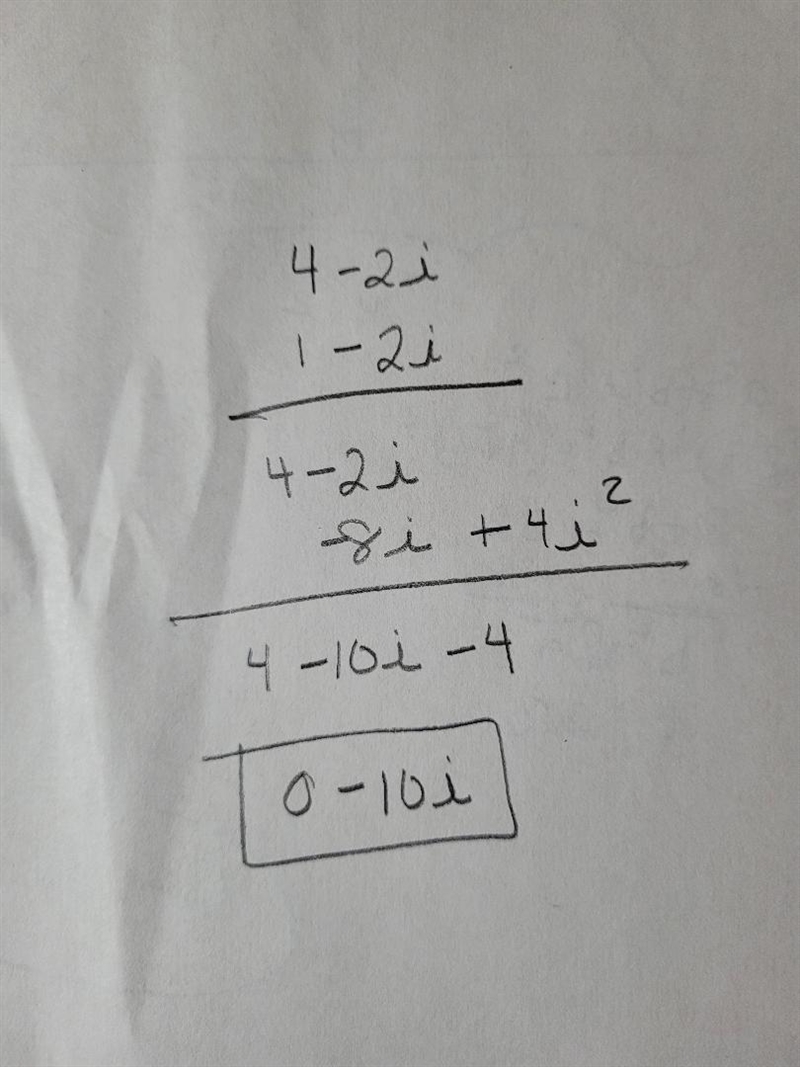 4-2i
1-2i
4-2i
-8i +4i²
4-10i-4
0-10i